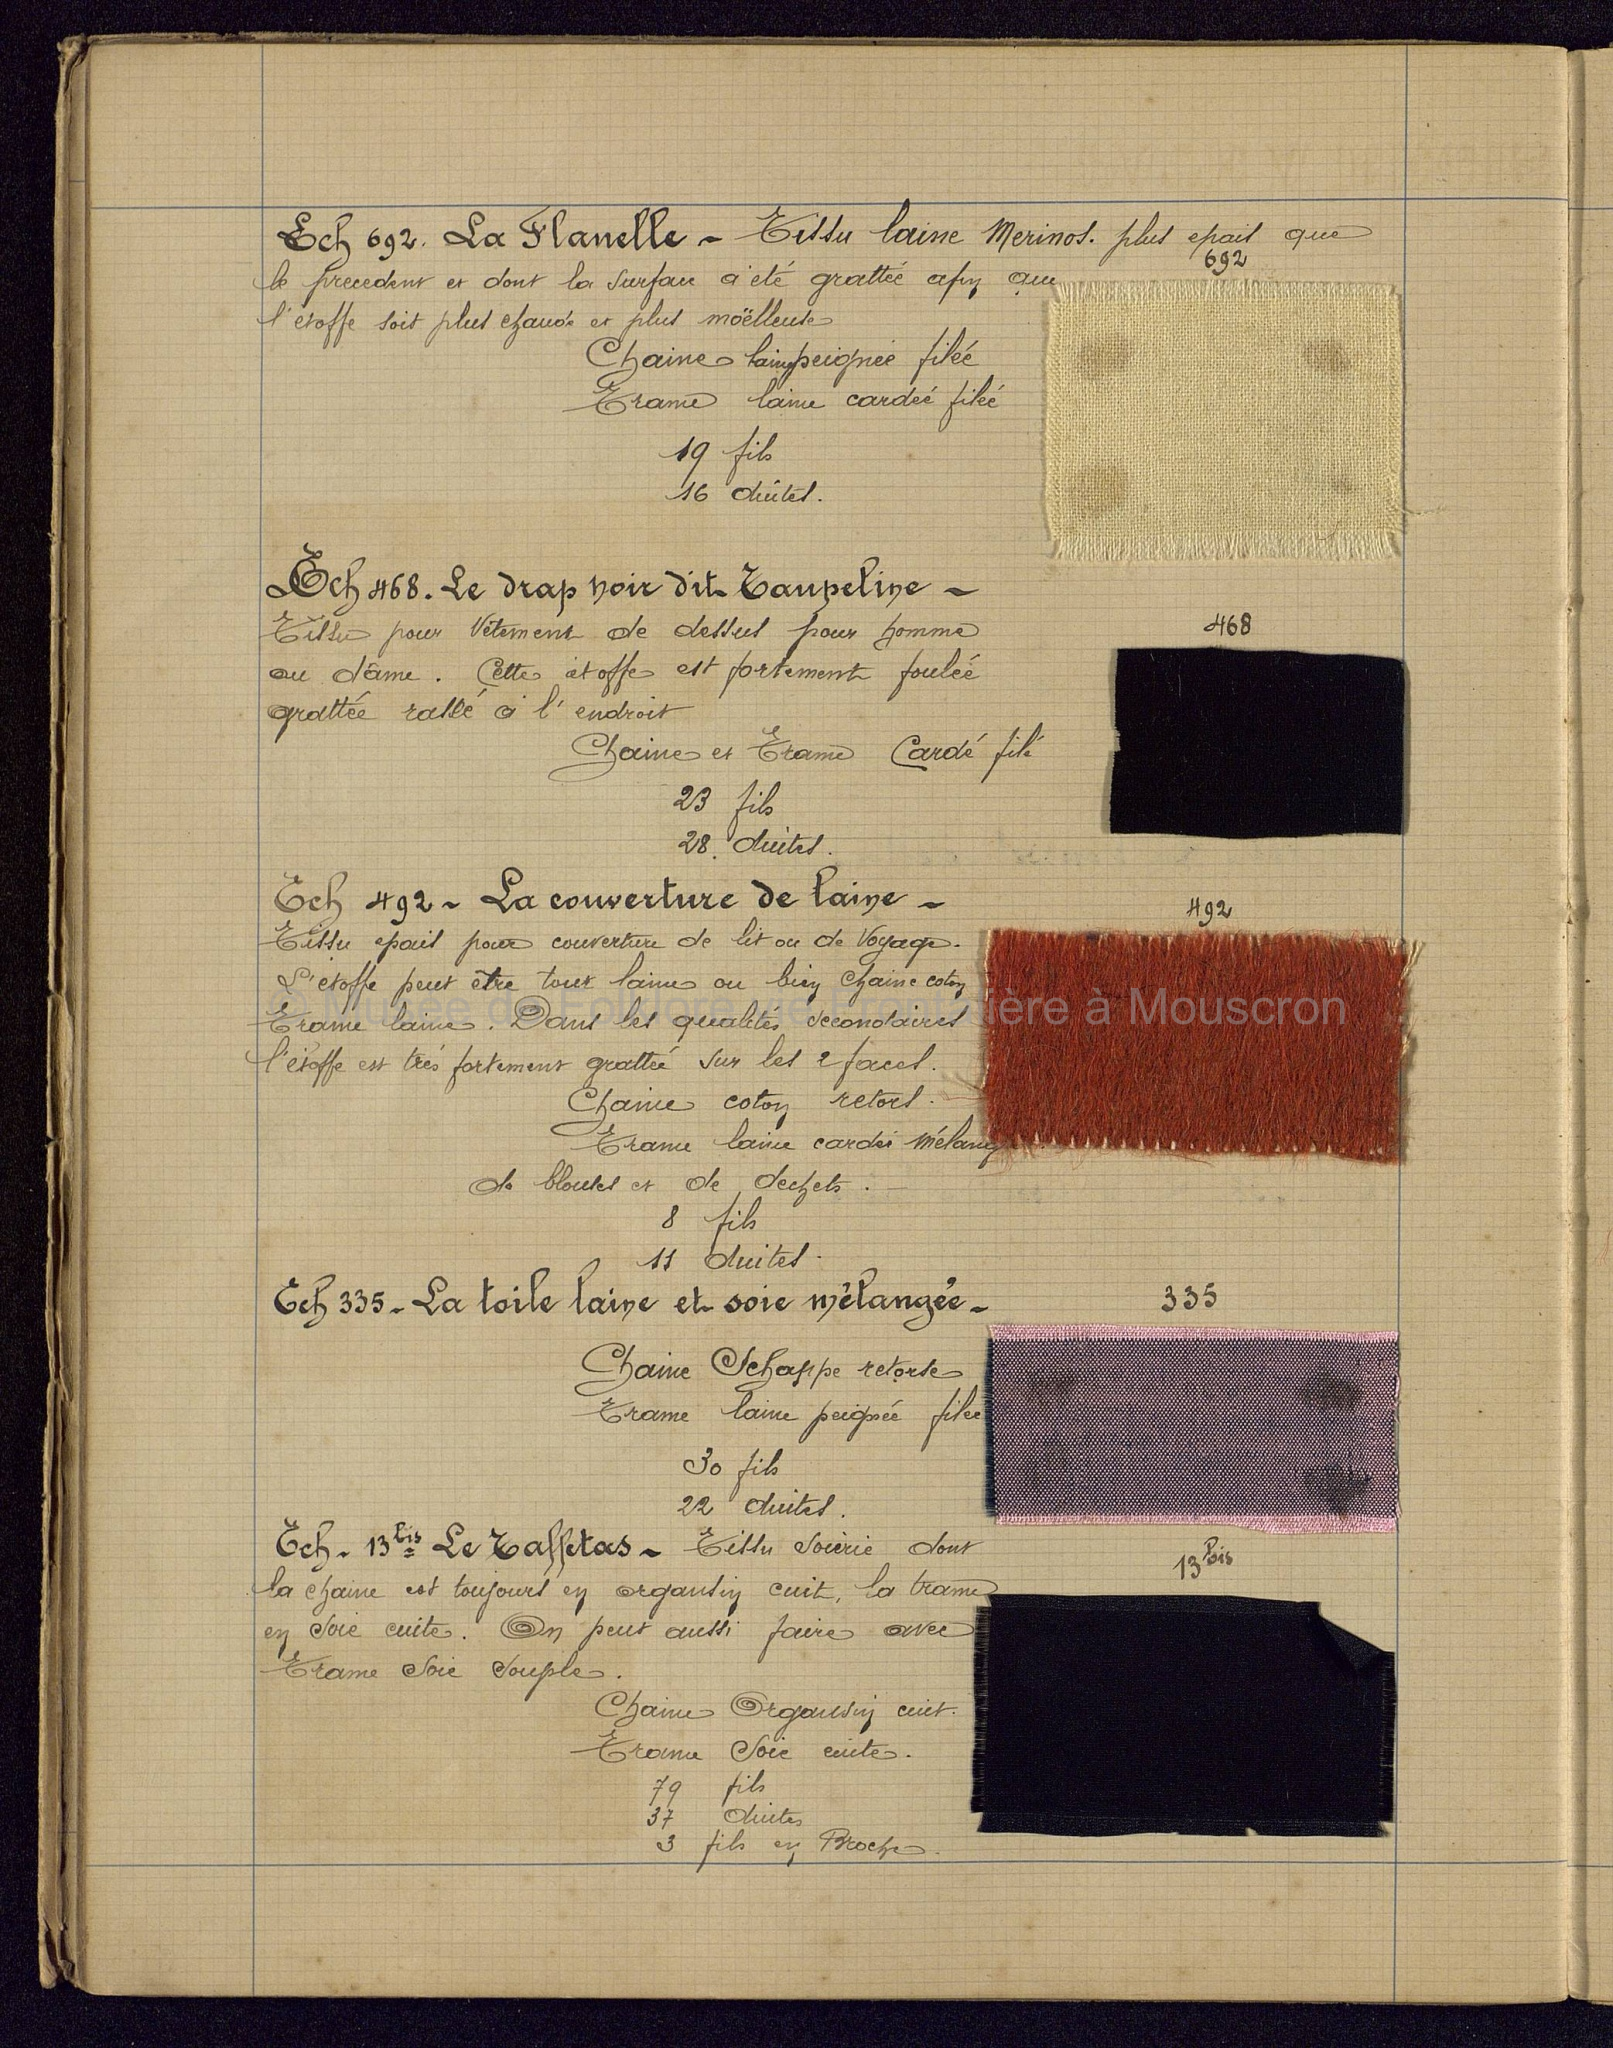 Ech 692. La Flanelle - Tissu laine Merinos. plus epais que
692
le precedent et dont la surface a été grattée afin que
l'étoffe soit plus chaude et plus moëlleuse
Chaine laine peignée filée
Trame laine cardée filée
19 fils
16 duites.
Ech 468. Le drap noir dit Taupeline -
Tissu pour Vêtement de dessus pour homme
468
ou dâme. Cette étoffe est fortement foulée
grattée rasée à l'endroit
Chaine et Trame Cardé filé
23 fils
28. duites.
Ech 492 - La couverture de laine -
492
Tissu epais pour couverture de lit ou de Voyage.
L'étoffe peut être tout laine ou bien chaine coton
© Musée de Folklore vie Frontalière à Mouscron
Trame laine. Dans les qualités secondaires
l'étoffe est trés fortement grattée sur les 2 faces.
Chaine coton retors.
Trame laine cardée mélang
de blouses et de dechets.
8 fils
11 duites.
Ech 335 - La toile laine et soie mélangée -
335
Chaine Schappe retorse
Trame laine peignée filée
30 fils
22 duites.
Ech - 13 bis Le Taffetas - Tissu soierie dont
13 bis
la chaine est toujours en organsin cuit, la trame
en soie cuite. On peut aussi faire avec
Trame Soie Souple.
Chaine Organsin cuit.
Trame Soie cuite.
79 fils
37 duites
3 fils en Broche.